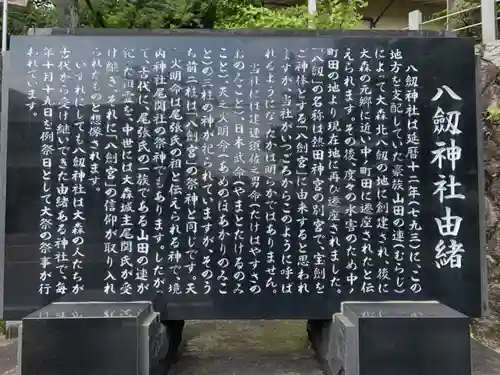 八劔神社由緒
八劔神社は延暦十二年(七九三)に、この
地方を支配していた豪族山田の連(むらじ)
によって大森北八劔の地に創建され、後に
大森の元郷に近い中町田に遷座されたと伝
えられます。その後、度々の水害のため、中ノ
町田の地より現在地に再び遷座されました。
「八劔」の名称は熱田神宮の別宮で、宝剣を
ご神体とする「八劔宮」に由来すると思われ
ますが、当社がいつごろからこのように呼ば
れるようになったかは明らかではありません。
当社には建速須佐之男命(たけはやすさの
おのみこと)、日本武命(やまとたけるのみ
こと)、天之火明命(あめのほあかりのみこ
と)の三柱の神が祀られていますが、そのう
ち前二柱は「八劔宮」の祭神と同じです。天
火明命は尾張氏の祖と伝えられる神で、境
内神社尾関社の祭神でもあります。したが
って、古代に、尾張氏の一族である山田の連が
祀った旧霊を、中世には大森城主尾関氏が受
け継ぎ、それに「八劔宮」の信仰が取り入れ
られたものと想像されます。
いずれにしても、八劔神社は大森の人たちが
古代から受け継いできた由緒ある神社で、毎
年十月十九日を例祭日として大祭の祭事が行
われています。